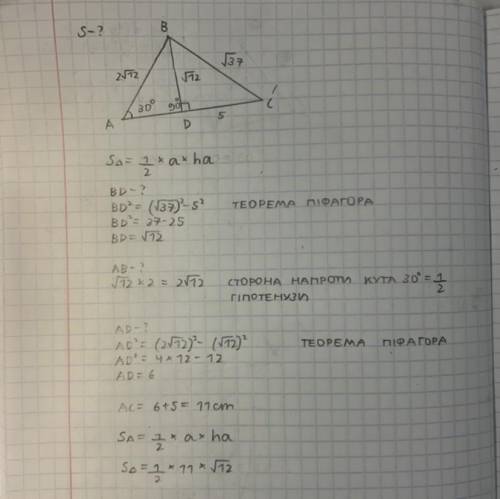 S-?
B
2√12
√12
√37
30°
90°
A
D
5
C
S△ = 1/2 × a × ha
BD-?
BD² = (√37)² - 5² ТЕОРЕМА ПІФАГОРА
BD² = 37 - 25
BD = √12
AB-?
√12 × 2 = 2√12 СТОРОНА НАПРОТИ КУТА 30° = 1/2
ГІПОТЕНУЗИ
AD-?
AD² = (2√12)² - (√12)² ТЕОРЕМА ПІФАГОРА
AD² = 4 × 12 - 12
AD = 6
AC = 6 + 5 = 11 cm
S△ = 1/2 × a × ha
S△ = 1/2 × 11 × √12